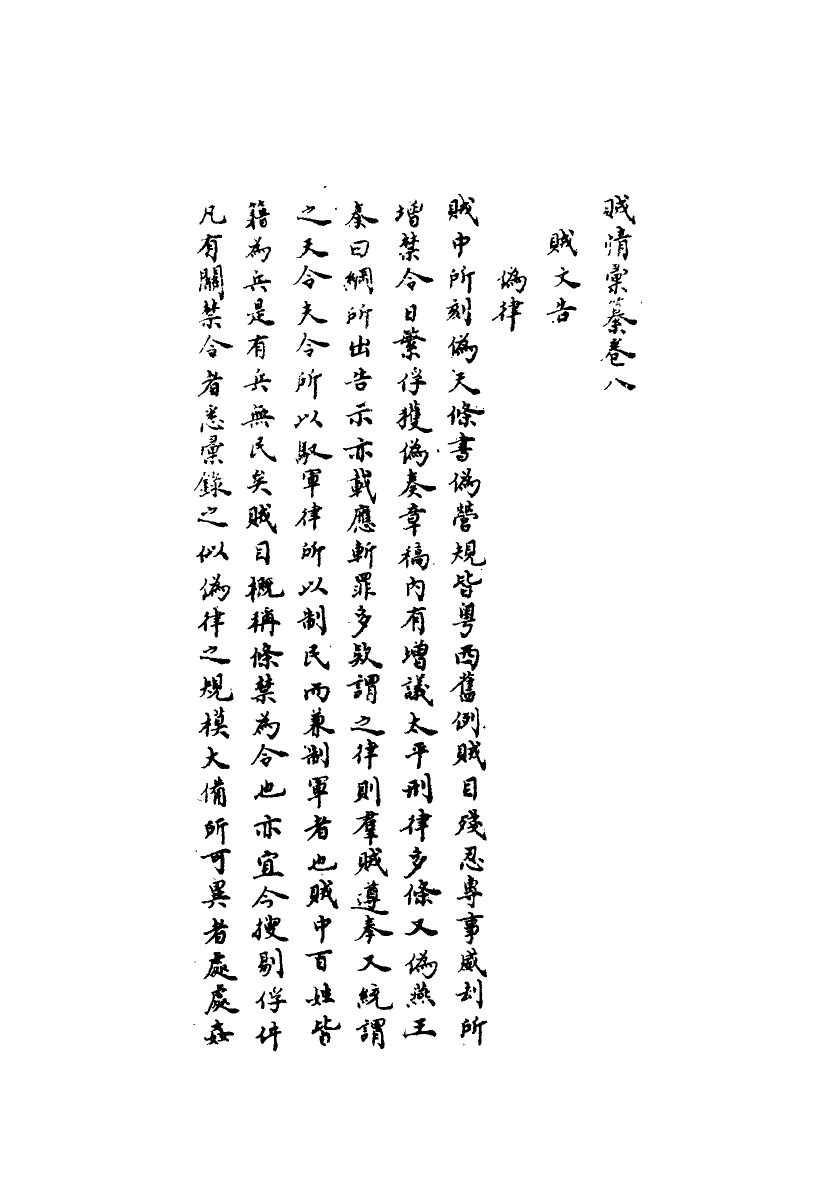 賊情彙纂卷八
賊文告
偽律
賊中所刻偽天條書偽營規皆粵西舊例賊目殘忍專事威刦所
增禁令日繁俘獲偽奏章稿內有增議太平刑律多條又偽燕王
秦日綱所出告示亦載應斬罪多欵謂之律則羣賊遵奉又統謂
之天令夫令所以馭軍律所以制民而兼制軍者也賊中百姓皆
籍為兵是有兵無民矣賊目概稱條禁為令也亦宜今搜剔俘件
凡有關禁令者悉彙錄之似偽律之規模大備所可異者處處姦